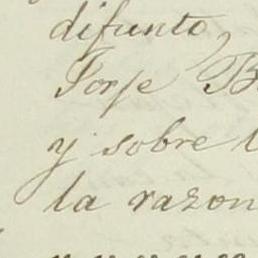 difunto,
Jorje B
y sobre
la razon